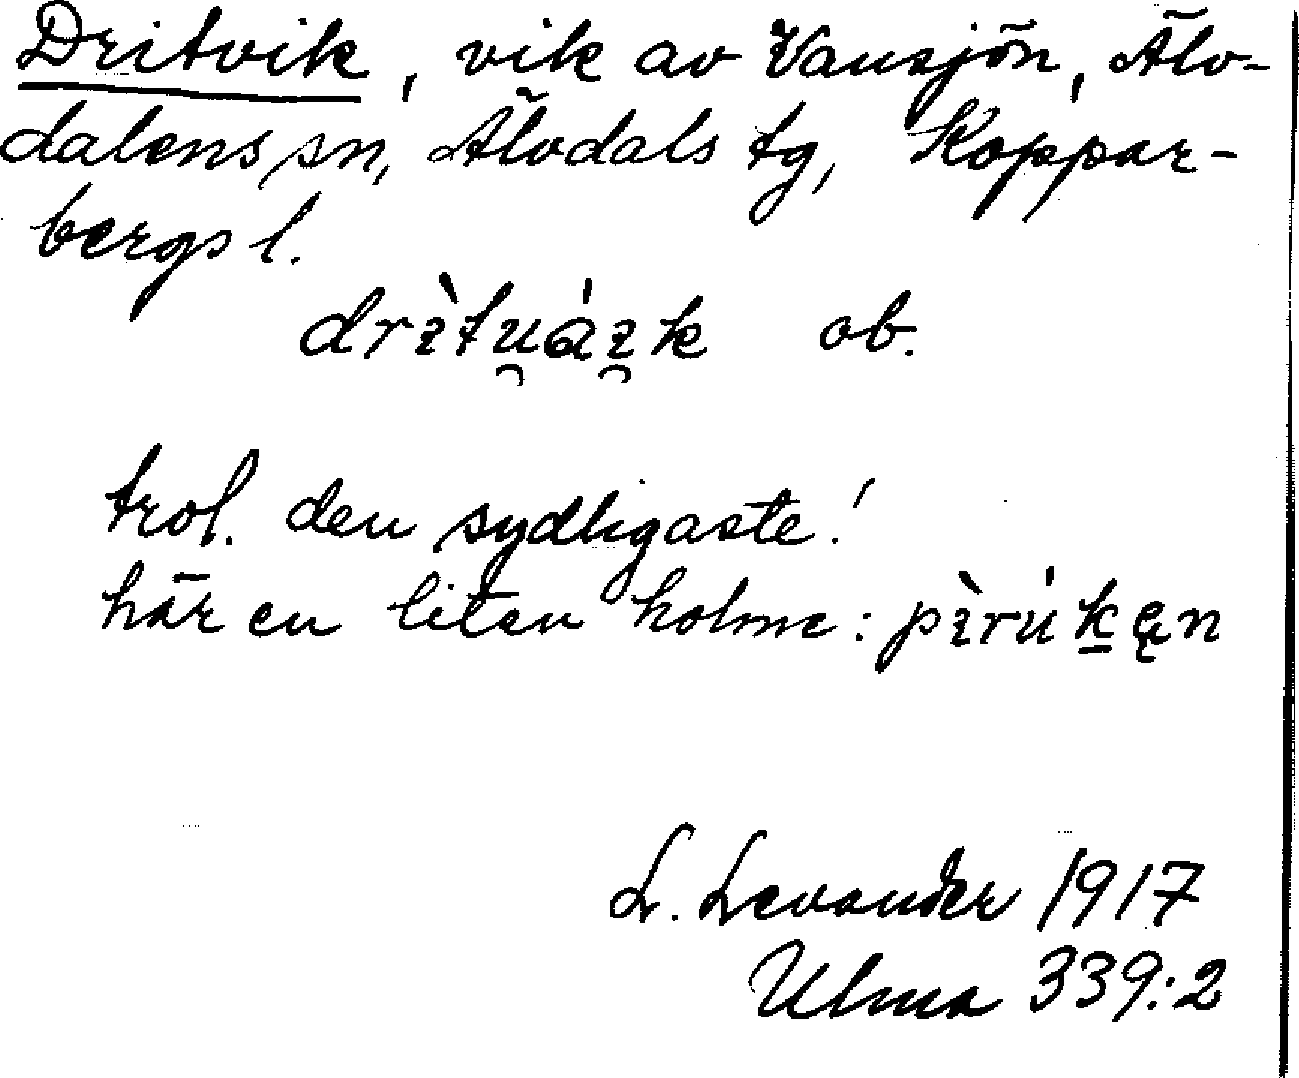 Dritvik, vik av Vansjön, Älv-
dalens sn, Älvdals tg, Koppar-
bergs l.
drìtu̯ái̯k ob.
trol. den sydligaste!
här en liten holme: pìrúk̠ęn
L. Levander 1917
Ulma 339:2